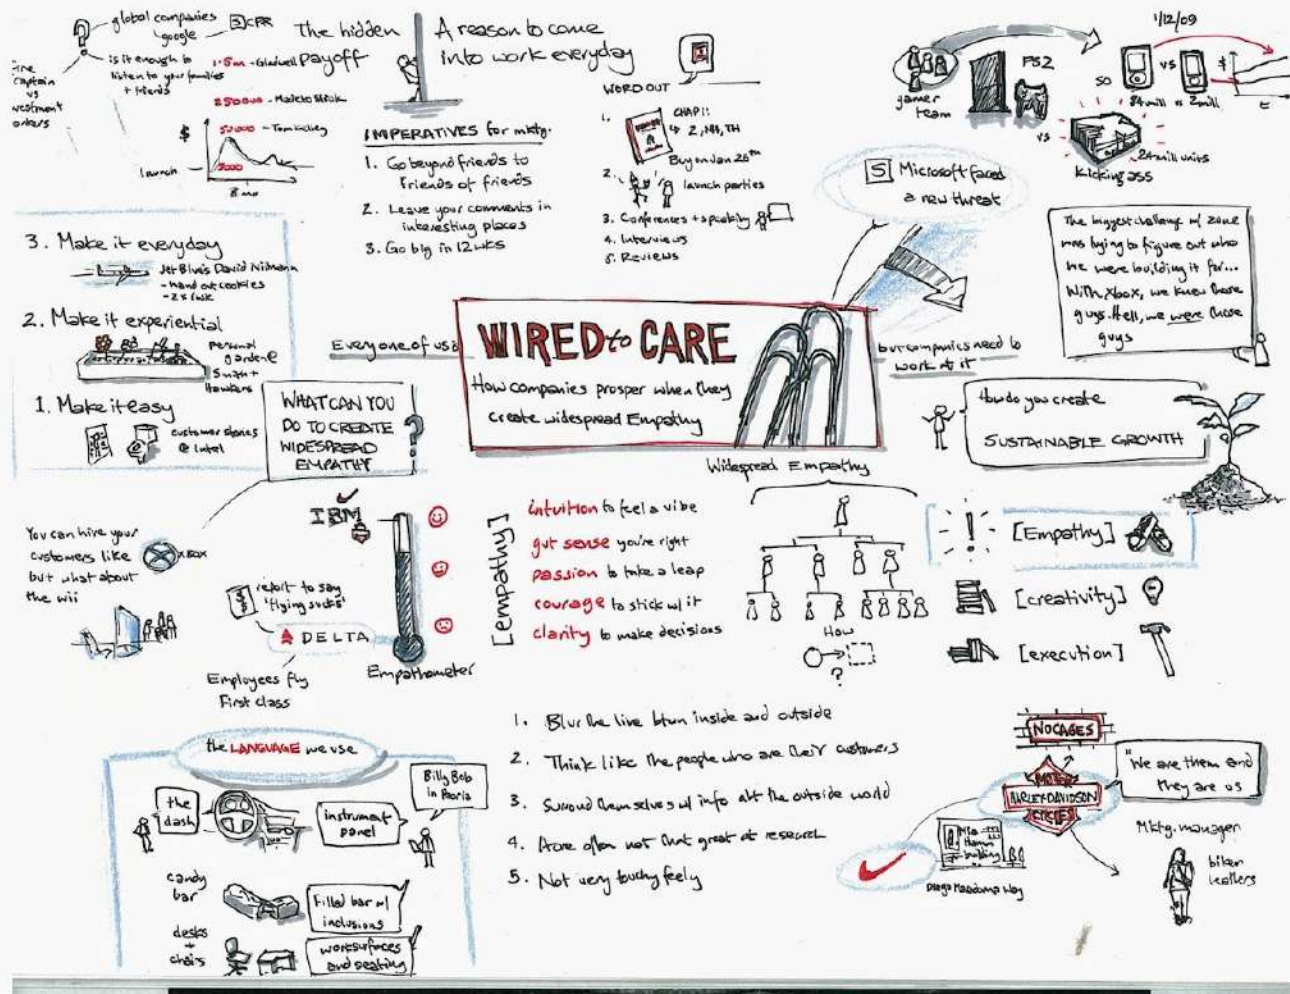 global companies
google
is it enough to
listen to your families
+ friends
captain
vs
The hidden
Payoff
1.5m - Gladwell
250000 - Made to Stick
50000 - Tom Kelley
$
launch
8 mo
A reason to come
into work everyday
IMPERATIVES for mktg.
1. Go beyond friends to
friends of friends
2. Leave your comments in
interesting places
3. Go big in 12 wks
WORD OUT
1.
CHAP 1:
Buy on Jan 26th
2.
launch parties
3. Conferences + speaking
4. Interviews
5. Reviews
gamer
team
PS2
vs
Kicking ass
24 mill units
1/12/09
SO
vs
84 mill vs 2 mill
$
t
5 Microsoft faced
a new threat
The biggest challenge w/ zune
was trying to figure out who
we were building it for...
With Xbox, we knew those
guys. Hell, we were those
guys
3. Make it everyday
Jet Blue's David
- hand out cookies
- 2x/wk
2. Make it experiential
personal
garden @
Smith +
Hawken
1. Make it easy
customer stories
@ Intel
WHAT CAN YOU
DO TO CREATE
WIDESPREAD
EMPATHY
?
Every one of us
WIRED to CARE
How companies prosper when they
create widespread Empathy
but companies need to
work at it
How do you create
SUSTAINABLE GROWTH
You can hire your
customers like
XBOX
but what about
the wii
IBM
report to say
'flying sucks'
DELTA
Employees fly
First class
Empathometer
[empathy]
intuition to feel a vibe
gut sense you're right
passion to take a leap
courage to stick w/ it
clarity to make decisions
Widespread Empathy
How
?
! [Empathy]
[creativity]
[execution]
the LANGUAGE we use
the
dash
instrument
panel
Billy Bob
in Peoria
candy
bar
Filled bar w/
inclusions
desks
+
chairs
worksurfaces
and seating
1. Blur the line btwn inside and outside
2. Think like the people who are their customers
3. Surround themselves w/ info abt the outside world
4. Are often not that great at research
5. Not very touchy feely
NO CAGES
MOTOR
HARLEY-DAVIDSON
CYCLES
"We are them and
they are us
Mktg. manager
biker
leathers
Mia
Hamm
building
Diego Maradona Way